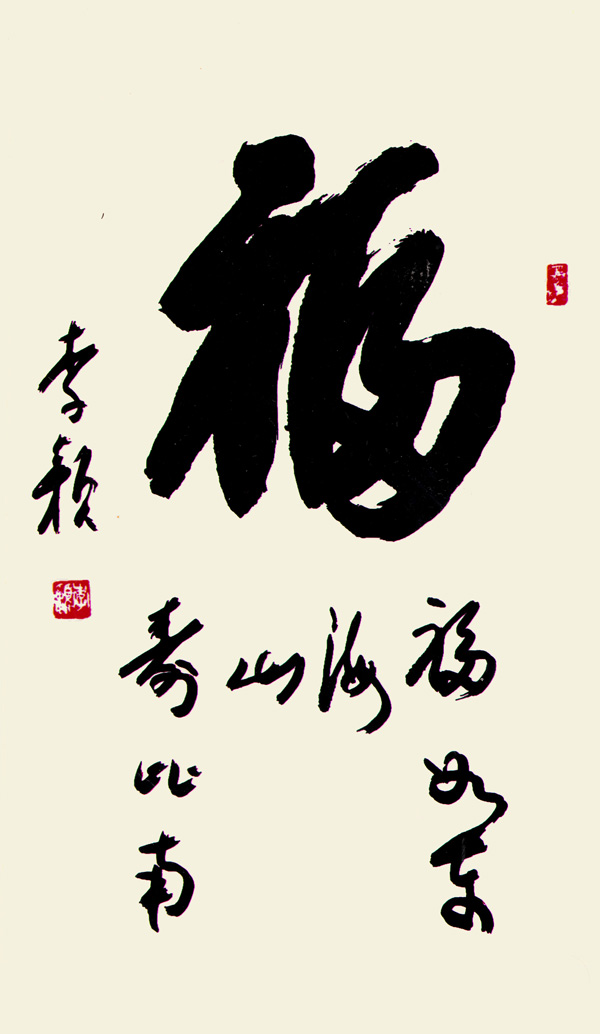 福
福如东
海
寿比南
山
李颖